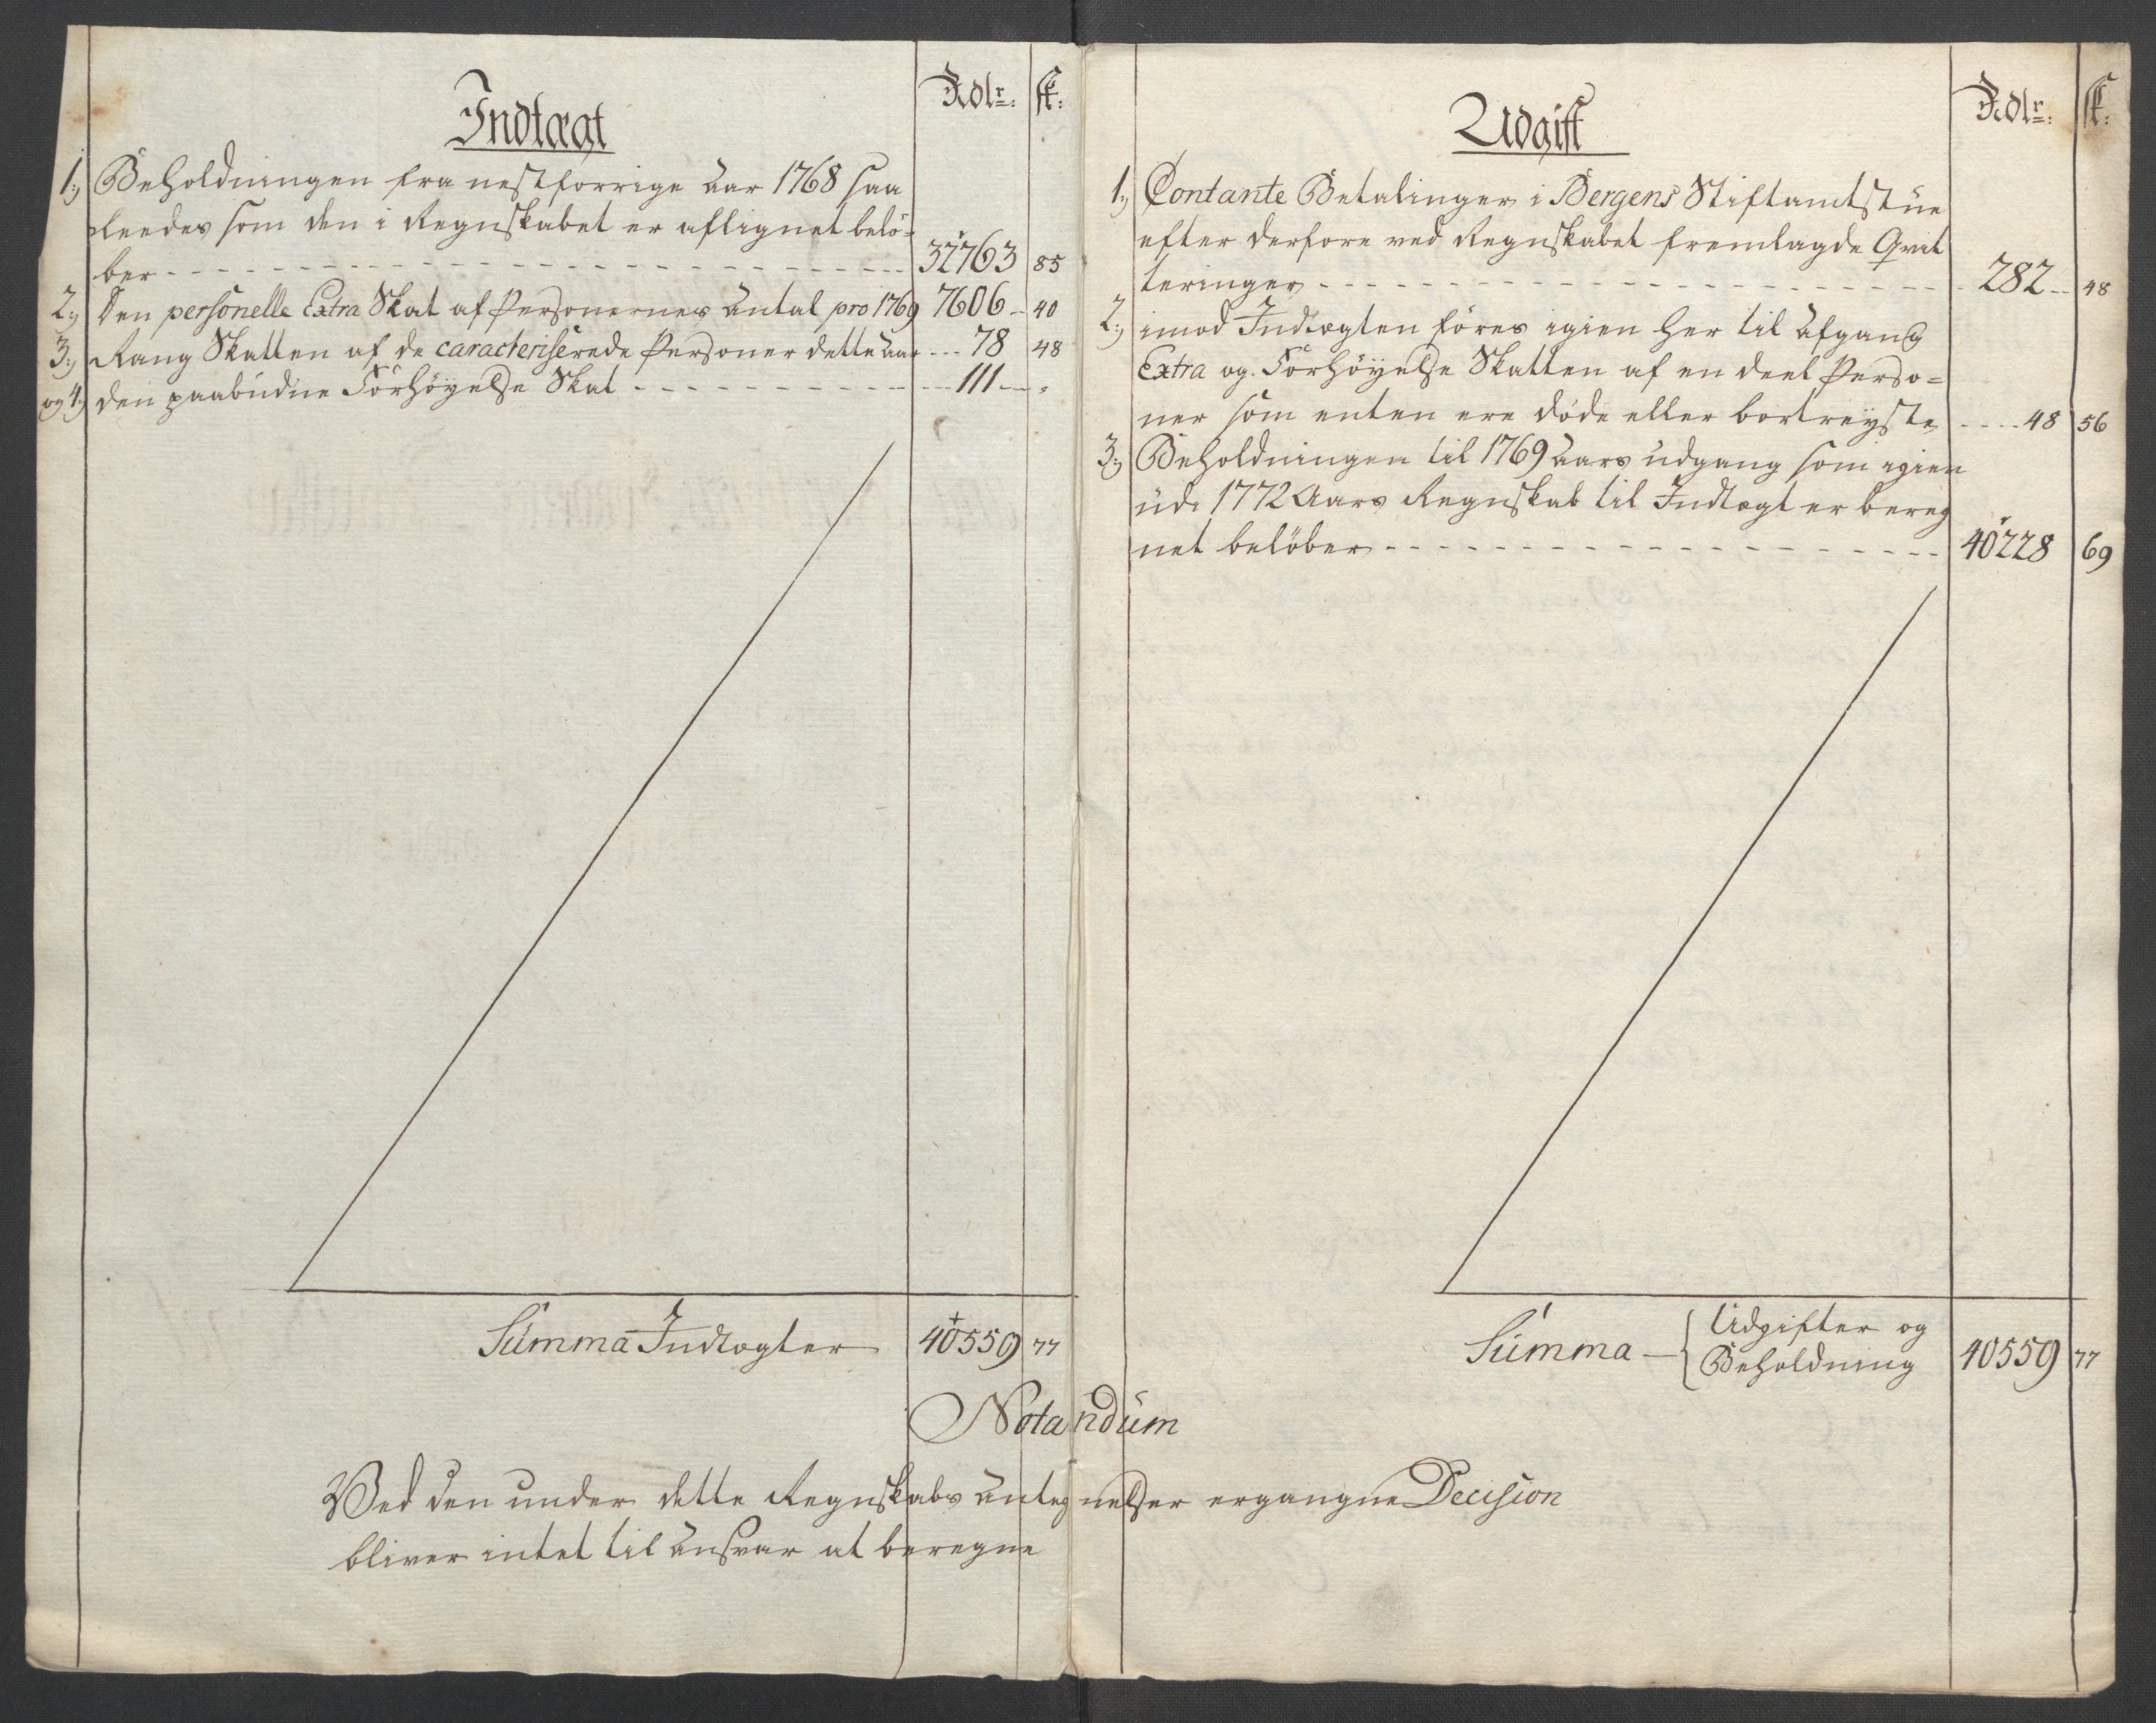 Indtægt
Rdlr: sk:
1:, Beholdningen fra nestforrige Aar 1768 saa
leedes som den i Regnskabet er aflignet belö-
ber 32763 85
2:, Den personelle Extra Skat af Personernes Antal pro 1769 7606 40
3:, Rang Skatten af de caracteriserede Personer dette Aar 78 48
og 4:, den paabudne Forhöyelse Skat 111 "
Summa Indtægter 40559 77
Udgift
Rdlr: sk:
1:, Contante Betalinger i Bergens Stiftamtstue
efter derfore ved Regnskabet fremlagde Qvit
teringer 282 48
2:, imod Indtægten föres igien her til Afgang
Extra og Forhöyelse Skatten af en deel Perso-
ner som enten ere döde eller bortreyste 48 56
3:, Beholdningen til 1769 Aars Udgang som igien
udi 1772 Aars Regnskab til Indtægt er bereg
net belöber 40228 69
Summa Udgifter og
Beholdning 40559 77
Notandum
Ved den under dette Regnskabs Antegnelser ergangne Decision
bliver intet til Ansvar at beregne